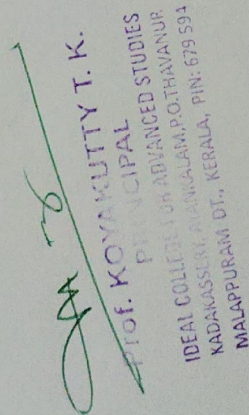 Prof. KOYAKUTTY T. K.
PRINCIPAL
IDEAL COLLEGE FOR ADVANCED STUDIES
KADAKASSERI, P.O.THAVANUR
MALAPPURAM DT., KERALA, PIN: 679 594